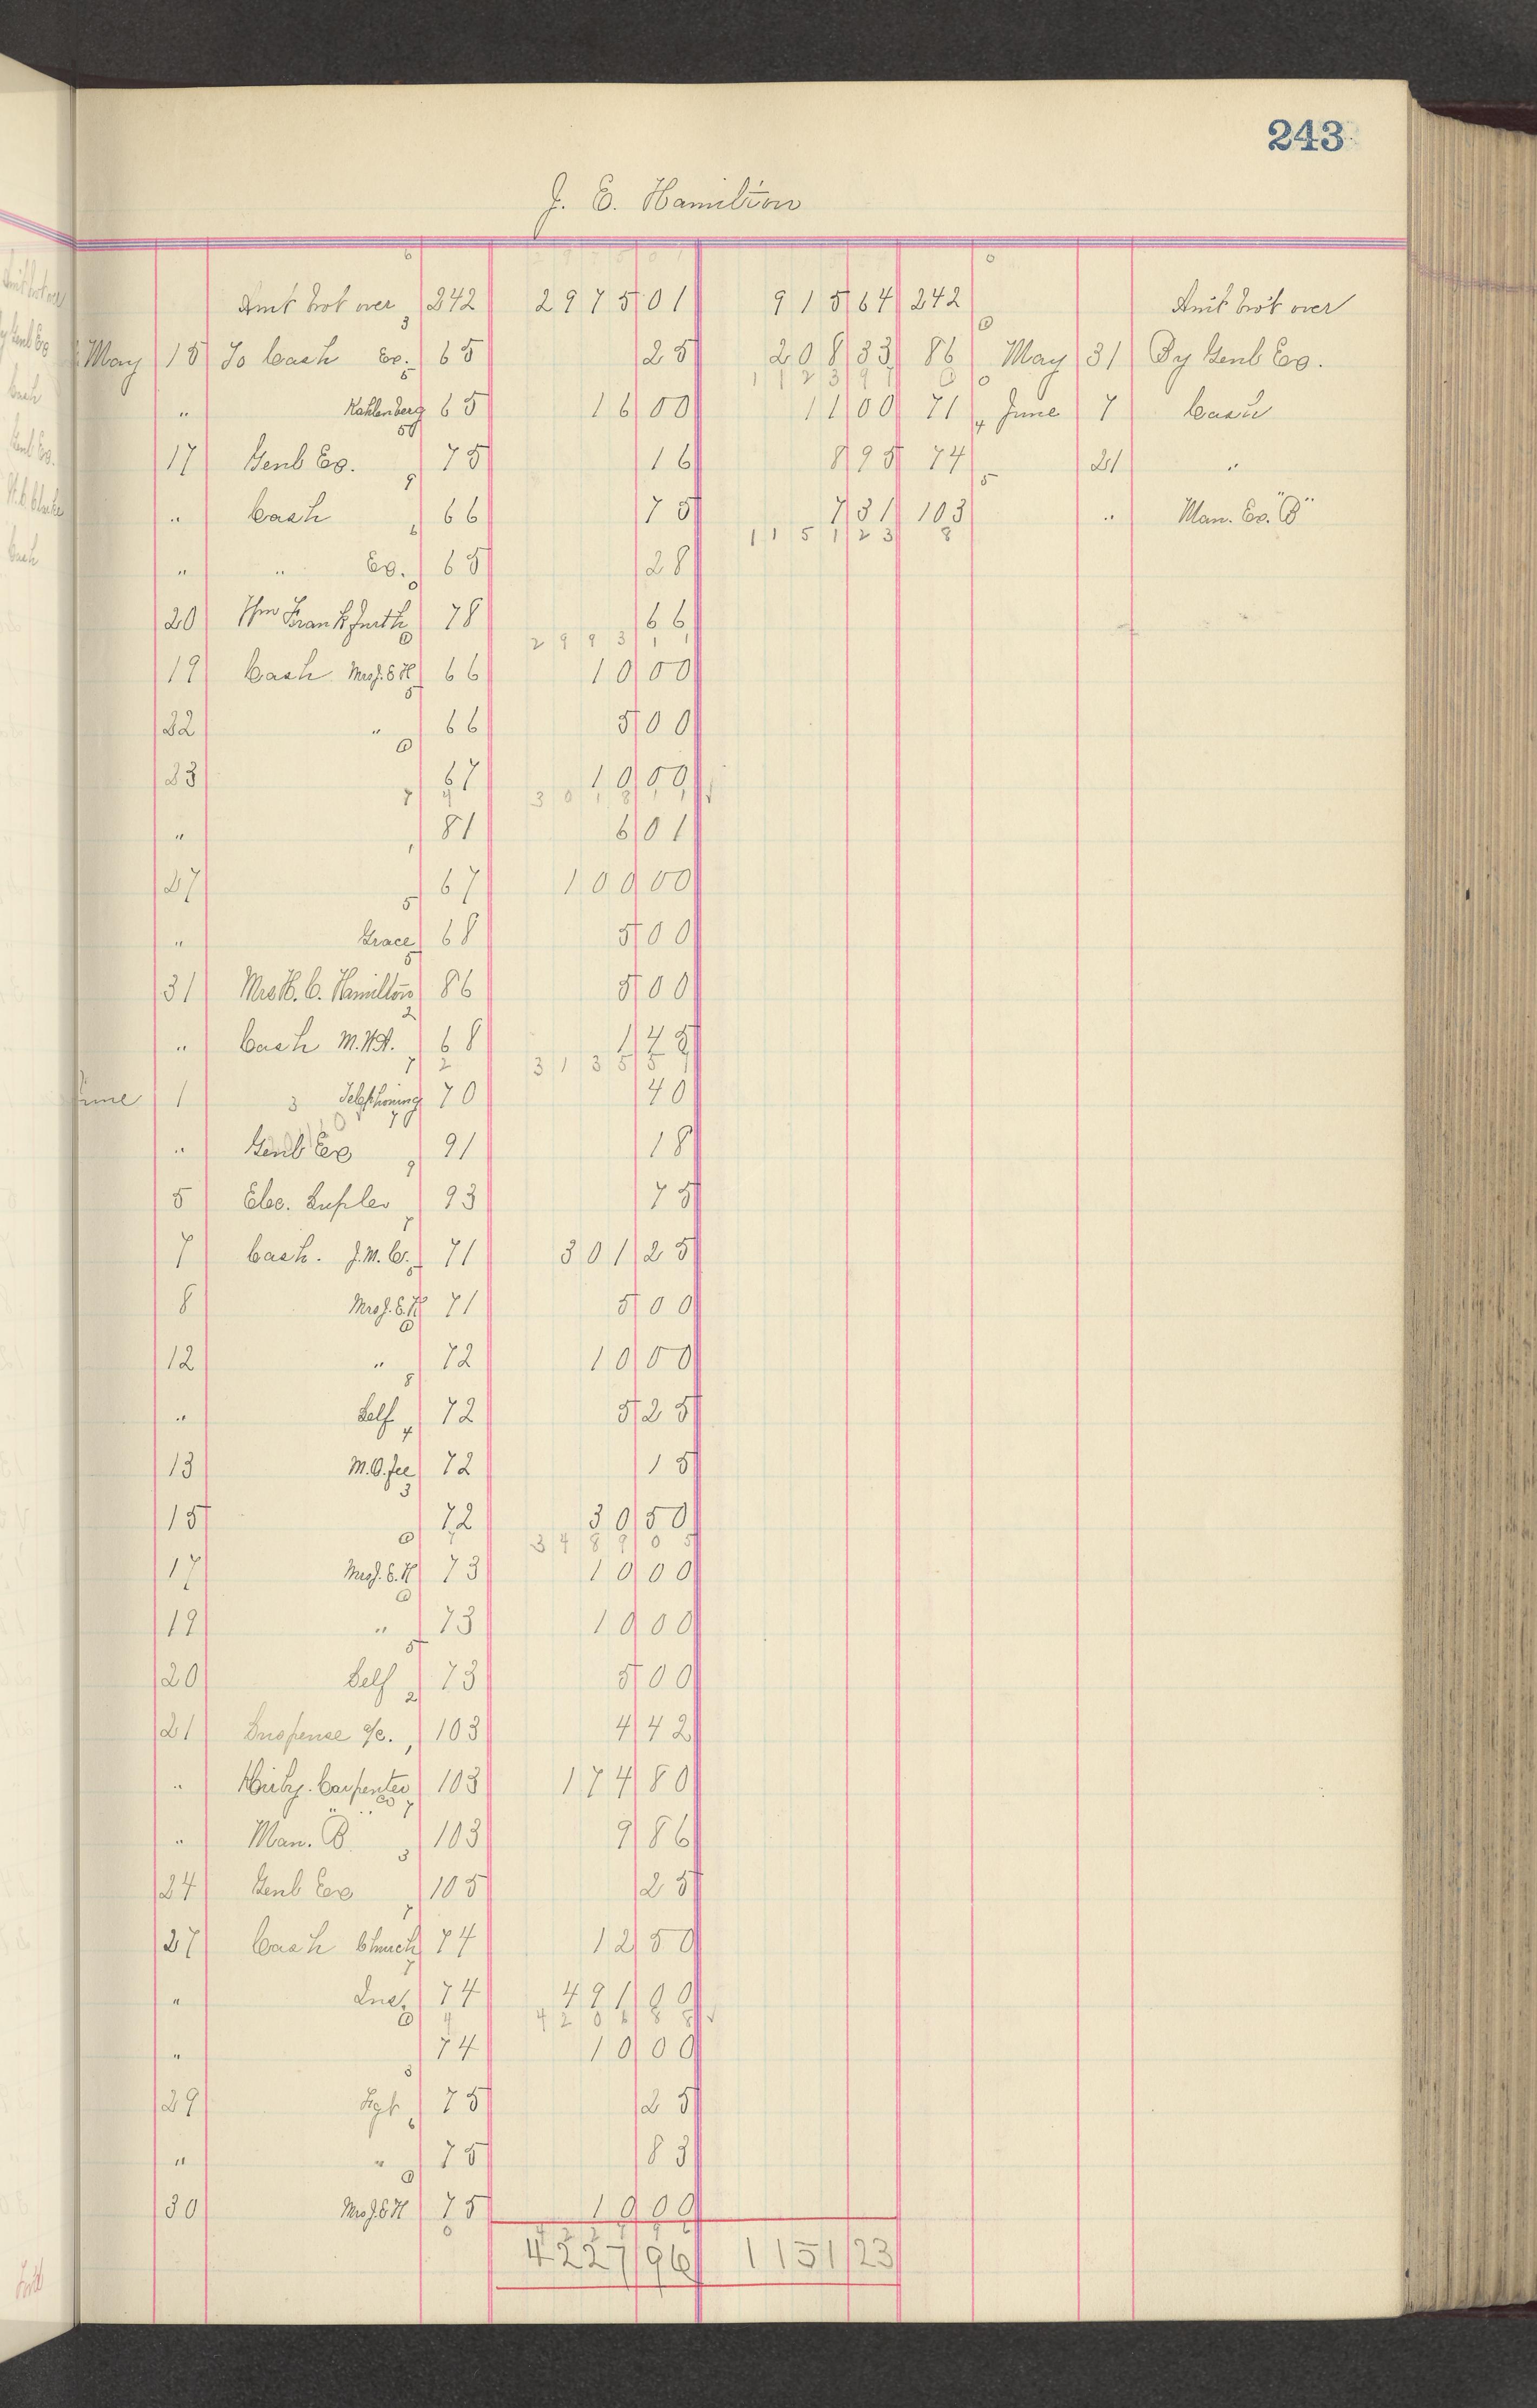 243
J. E. Hamilton
Amt brot over 242 2975 01 915 64 242 Amt brot over
May 15 To Cash Ex. 65 25 208 33 86 May 31 By Genl Ex.
1123 97
" Kahlenberg 65 16 00 11 00 71 June 7 Cash
17 Genl Ex. 75 16 8 95 74 21 "
" Cash 66 75 7 31 103 " Man. Ex. "B"
1151 23
" " Ex. 65 28
20 Wm Frankfurth 78 66
2993 11
19 Cash Mrs J.E.H 66 10 00
22 " 66 5 00
23 67 10 00
3018 11
" 81 6 01
27 67 100 00
" Grace 68 5 00
31 Mrs H. C. Hamilton 86 5 00
" Cash M.W.A. 68 1 45
3135 57
June 1 Telephoning 70 40
" Genl Ex 91 18
5 Elec. Suplex 93 75
7 Cash. J.M.C. 71 301 25
8 Mrs J.E.H 71 5 00
12 " 72 10 00
" Self 72 5 25
13 M.O. fee 72 15
15 72 30 50
3489 05
17 Mrs J.E.H 73 10 00
19 " 73 10 00
20 Self 73 5 00
21 Suspense a/c. 103 4 42
" Kirby. Carpenter Co 103 174 80
" Man. "B" 103 9 86
24 Genl Ex 105 25
27 Cash Church 74 12 50
" 74 491 00
4206 88
" 74 10 00
29 Fgt 75 25
" " 75 83
30 Mrs J.E.H 75 10 00
4227 96 1151 23